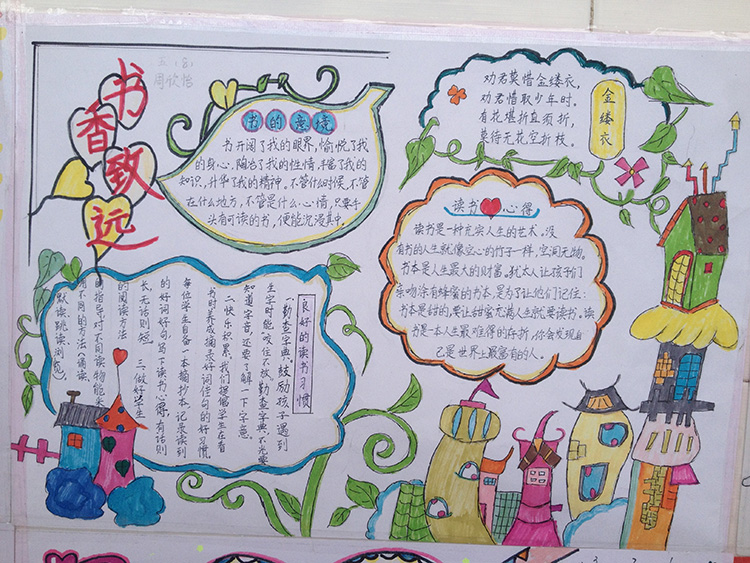 五.(8)
书香致远
书的意境
书开阔了我的眼界,愉悦了我
的身心,陶冶了我的性情,丰富了我的
知识,升华了我的精神,不管什么时候,不管
在什么地方,不管是什么心情,只要手
头有可读的书,便能沉浸其中.
金缕衣
劝君莫惜金缕衣,
劝君惜取少年时。
有花堪折直须折,
莫待无花空折枝。
读书心得
读书是一种充实人生的艺术。没
有书的人生就像空心的竹子一样,空洞无物。
书本是人生最大的财富。犹太人让孩子们
亲吻涂有蜂蜜的书本,是为了让他们记住:
书本是甜的,要让甜蜜充满人生就要读书。读
书是一本人生最难得的存折,你会发现自
己是世界上最富有的人。
良好的读书习惯
一.勤查字典。鼓励孩子遇到
生字时能"咬住不放"勤查字典,不光要
知道字音,还要了解一下字意。
二.快乐积累。我们提醒学生在看
书时养成摘录好词佳句的好习惯
每位学生自备一本摘抄本,记录读到
的好词好句,写下读书心得,有话则
长,无话则短。三.做好学生
的阅读方法
的指导,对不同读物能采
用不同的方法(诵读、
默读跳读浏览)。